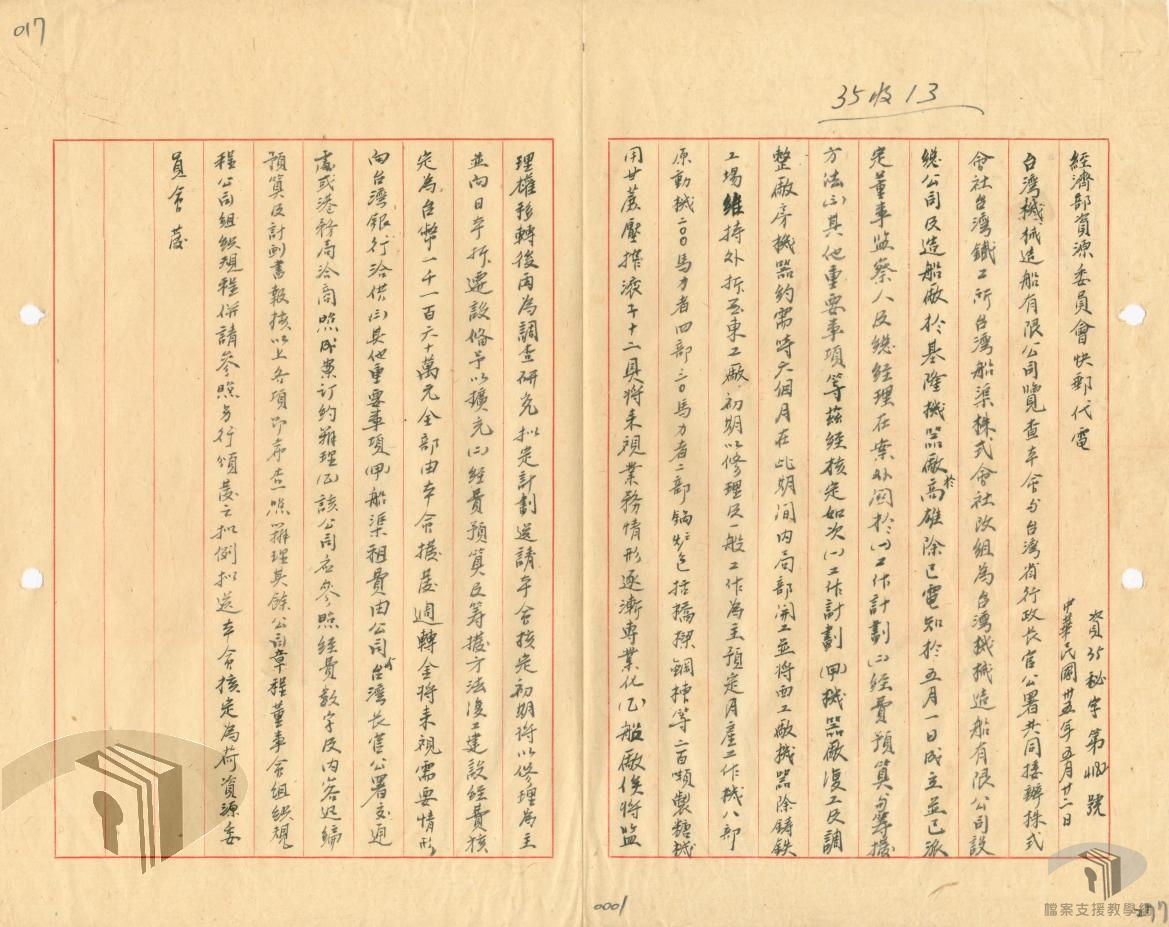 017
35收13
經濟部資源委員會快郵代電
資35秘字第482號
中華民國卅五年五月廿二日
台灣機械造船有限公司覽查本會与台灣省行政长官公署共同接辦株式
會社台灣鐵工所台灣船渠株式會社改組為台灣機械造船有限公司設
總公司及造船廠於基隆機器廠於高雄除已電知於五月一日成立並已派
定董事監察人及總經理在案外関於(一)工作計劃(二)經費預算与籌撥
方法(三)其他重要事項等茲經核定如次(一)工作計劃(甲)機器廠復工及調
整廠房機器約需時六個月在此期间内局部開工並将西工廠機器除鋳鉄
工場維持外拆至東工廠初期以修理及一般工作為主預定月產工作機八部
原動機二00馬力者四部三0馬力者二部鍋炉包括橋樑鋼構等二百噸製糖機
用甘蔗壓搾滚子十二具将来視業務情形逐漸専業化(乙)船廠俟将監
理權移轉後再為調查研究拟定計劃送請本會核定初期将以修理為主
並向日本拆遷設備予以擴充(二)經費預算及籌撥方法復工建設經費核
定為台幣一千一百六十萬元全部由本會撥發週轉金将来視需要情形
向台灣銀行洽供(三)其他重要事項(甲)船渠租費由公司向台灣长官公署交通
處或港務局洽商照成案订約辦理(乙)該公司应参照經費數字及内容迅编
預算及計劃書報核以上各項即希查照辦理其餘公司章程董事會組織規
程公司組織規程併請參照另行頒發之拟例拟送本會核定為荷資源委
員會蒸
0001
檔案支援教學網